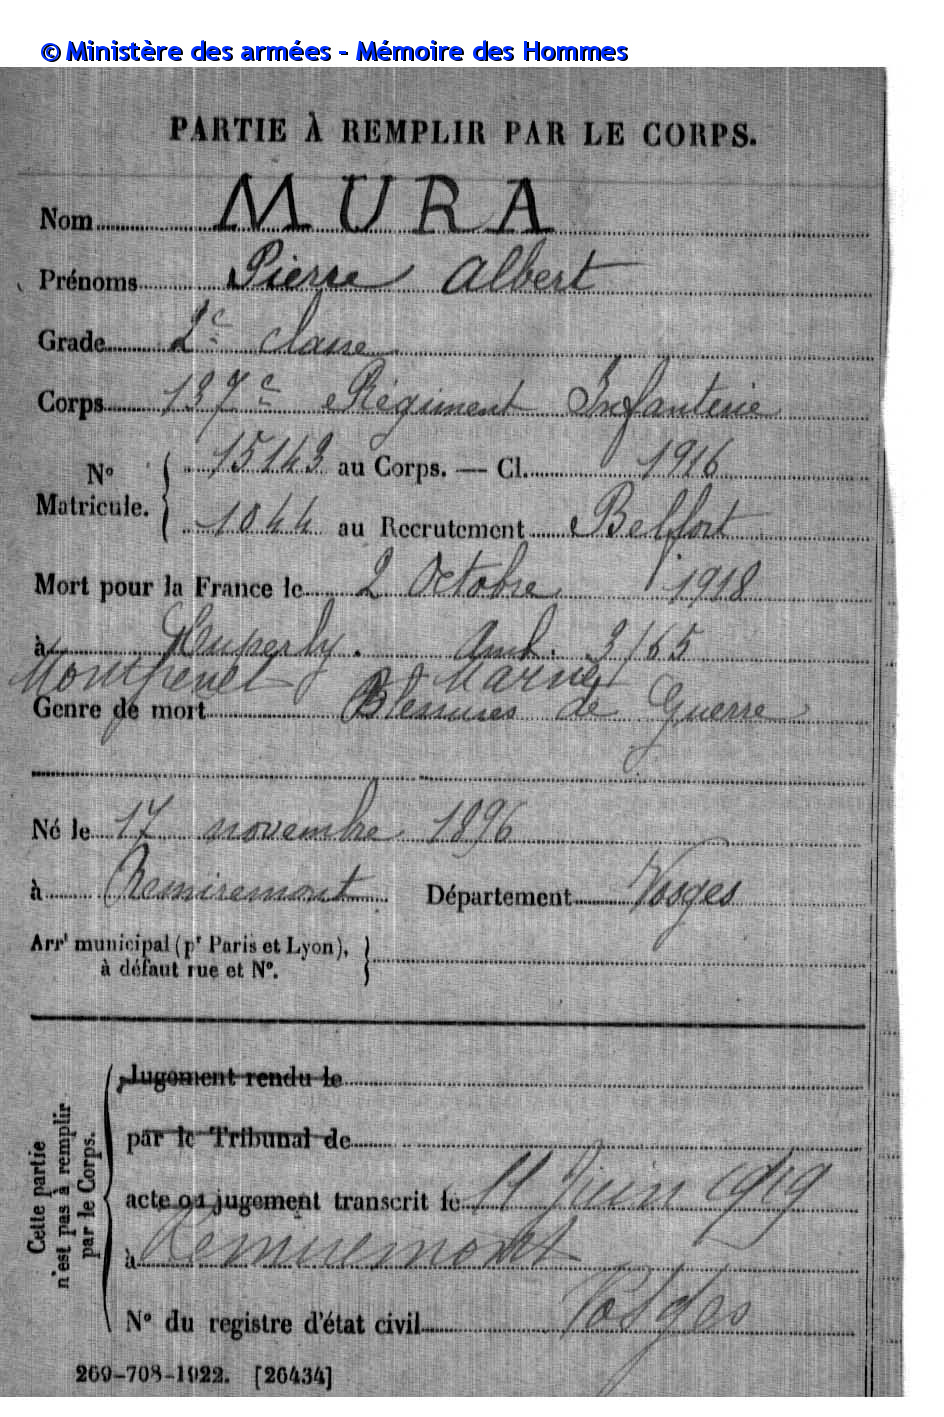 © Ministère des armées - Mémoire des Hommes
PARTIE À REMPLIR PAR LE CORPS.
Nom MURA
Prénoms Pierre Albert
Grade 2e classe
Corps 137e Régiment Infanterie
N° Matricule. 15143 au Corps. — Cl. 1916
1044 au Recrutement Belfort
Mort pour la France le 2 Octobre 1918
à Cuperly. Amb. 3/65
Marne
Genre de mort Blessures de Guerre
Né le 17 novembre 1896
à Remiremont Département Vosges
Arrt municipal (pr Paris et Lyon),
à défaut rue et N°.
Cette partie
n'est pas à remplir
par le Corps.
Jugement rendu le
par le Tribunal de
acte ou jugement transcrit le 11 Juin 1919
à Remiremont
Vosges
N° du registre d'état civil
269-708-1922. [26434]